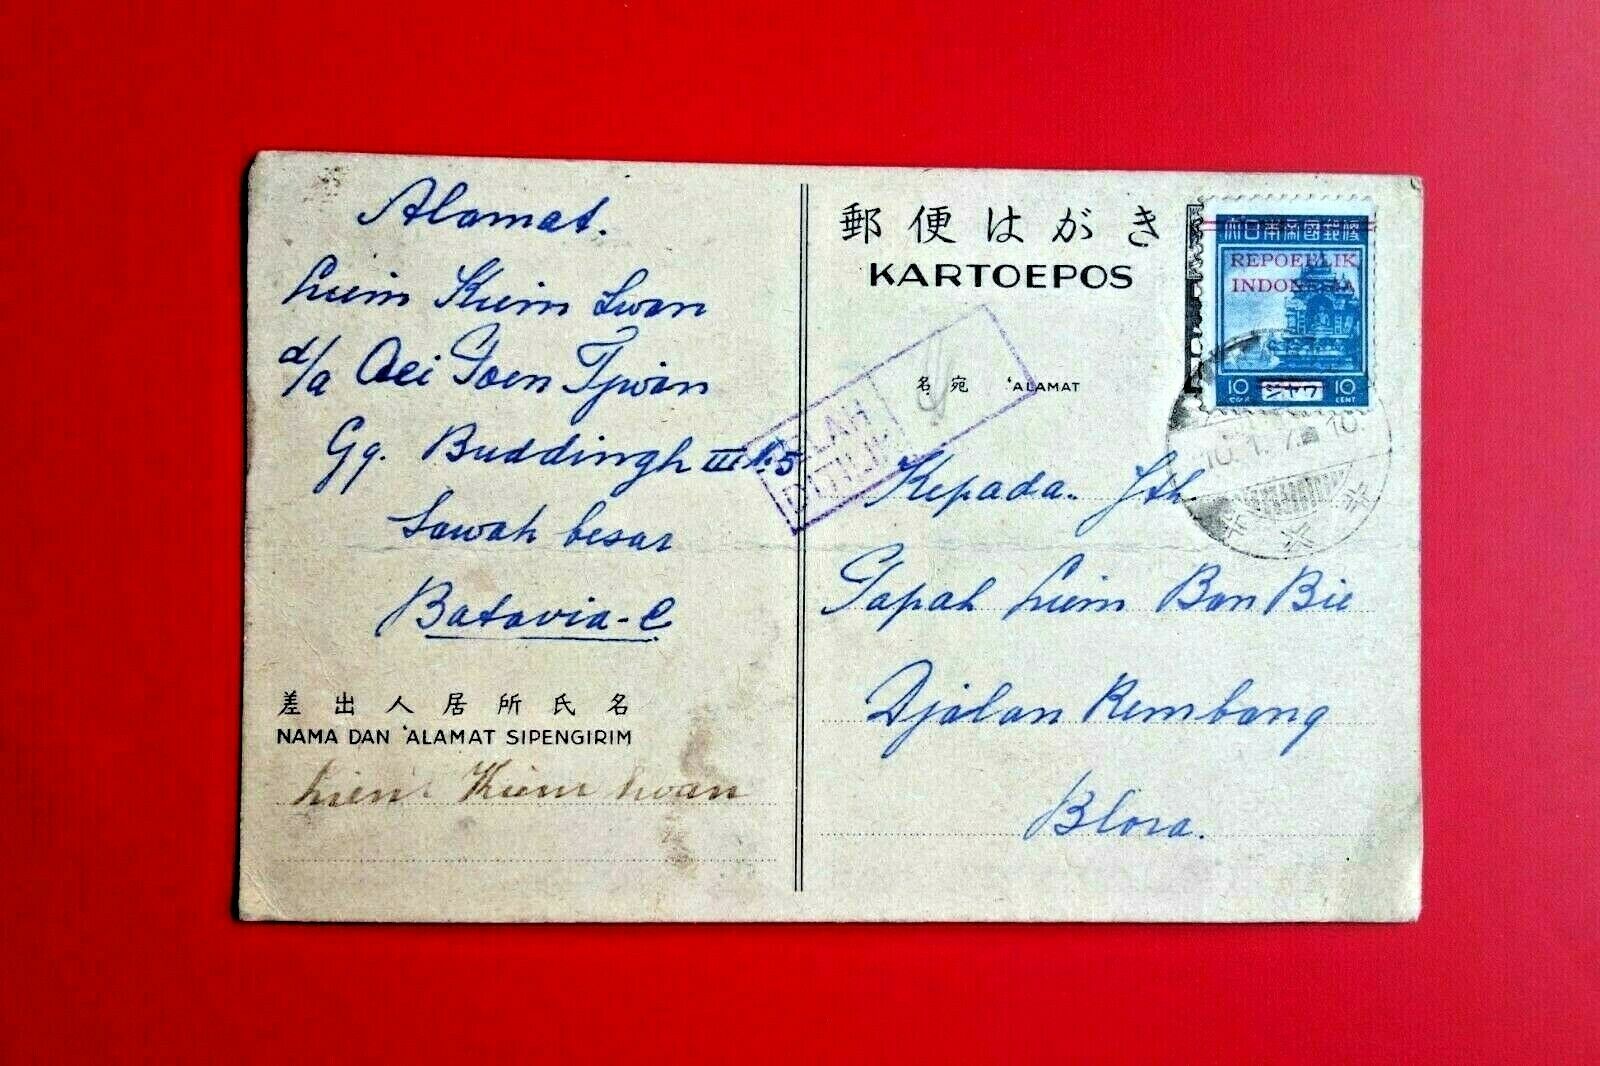 Alamat.
Liem Kiem Swan
d/a Oei Goen Tjwan
Gg. Buddingh III No. 5
Sawah besar
Batavia-C
差出人居所氏名
NAMA DAN 'ALAMAT SIPENGIRIM
Liem Kiem Swan
郵便はがき
KARTOEPOS
大日本帝國郵便
REPOEBLIK
INDONESIA
10 ジャワ 10
CENT CENT
名宛 'ALAMAT
TELAH
DITILIK
Kepada Jth.
Papah Liem Ban Bie
Djalan Rembang
Blora.